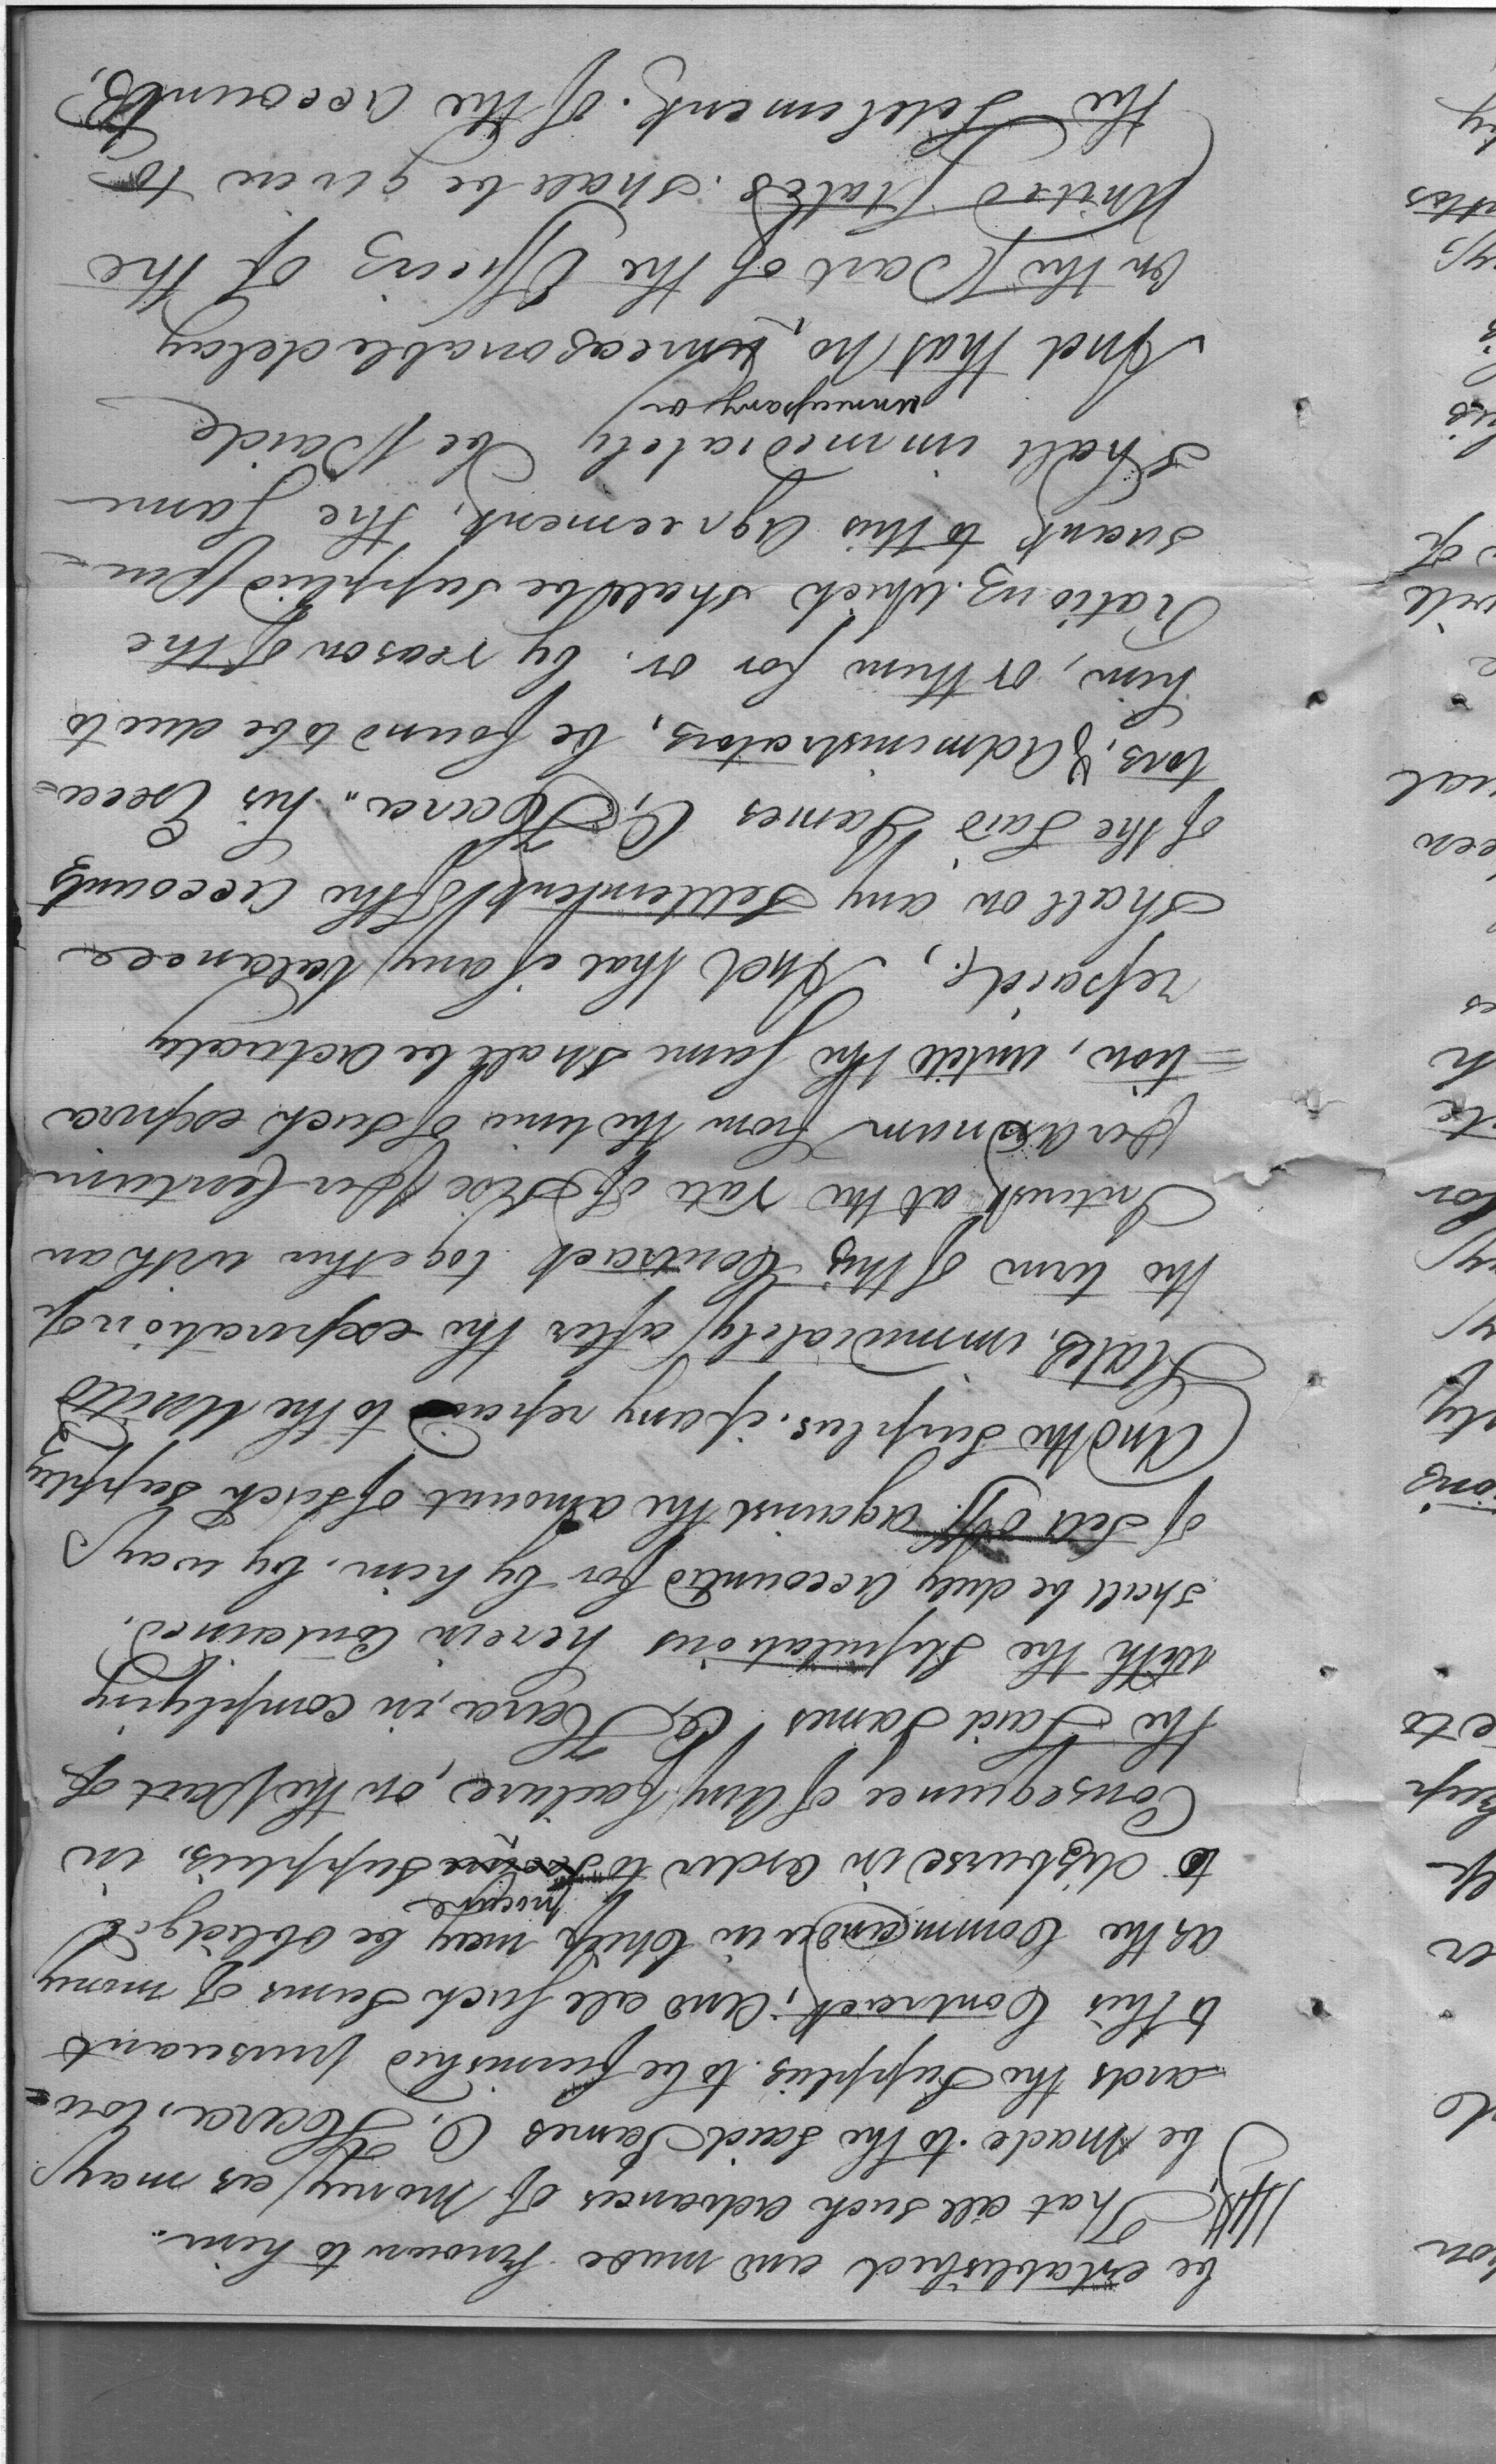 be established and made known to him.
That all such advances of Money as may
be Made to the said James O, Harra, tow=
ards the Supplies to be furnished pursuant
to this Contract, and all such Sums of mony
as the Commander in Chief may be oblidged
procure
to disburse in order to supplies, in
Consequence of Any failure, on the Part of
the Said James O, Harra, in complying
with the stipulations herein Contained,
shall be duly accounted for by him, by way
of Sett off. against the amount of such supply
And the Surplus, if any repaid to the United
States, immediately after the expiration of
the term of this Contract together with an
Interest at the rate of Six Per Centum
Per Annum from the time of such expira
=tion, untill the same shall be actually
repaide, And that if any balance
shall on any settlement of the accounts
of the Said James O, Harra, his Execu=
tors, & Administrators, be found to be due to
him, or them for or by reason of the
Rations, which shall be supplied pur=
suant to this Agreement, the same
Shall immediately be Paide
unnecessary or
And that no, unreasonable delay
on the Part of the Officers of the
United States shall be given to
the Settlement of the Accounts,